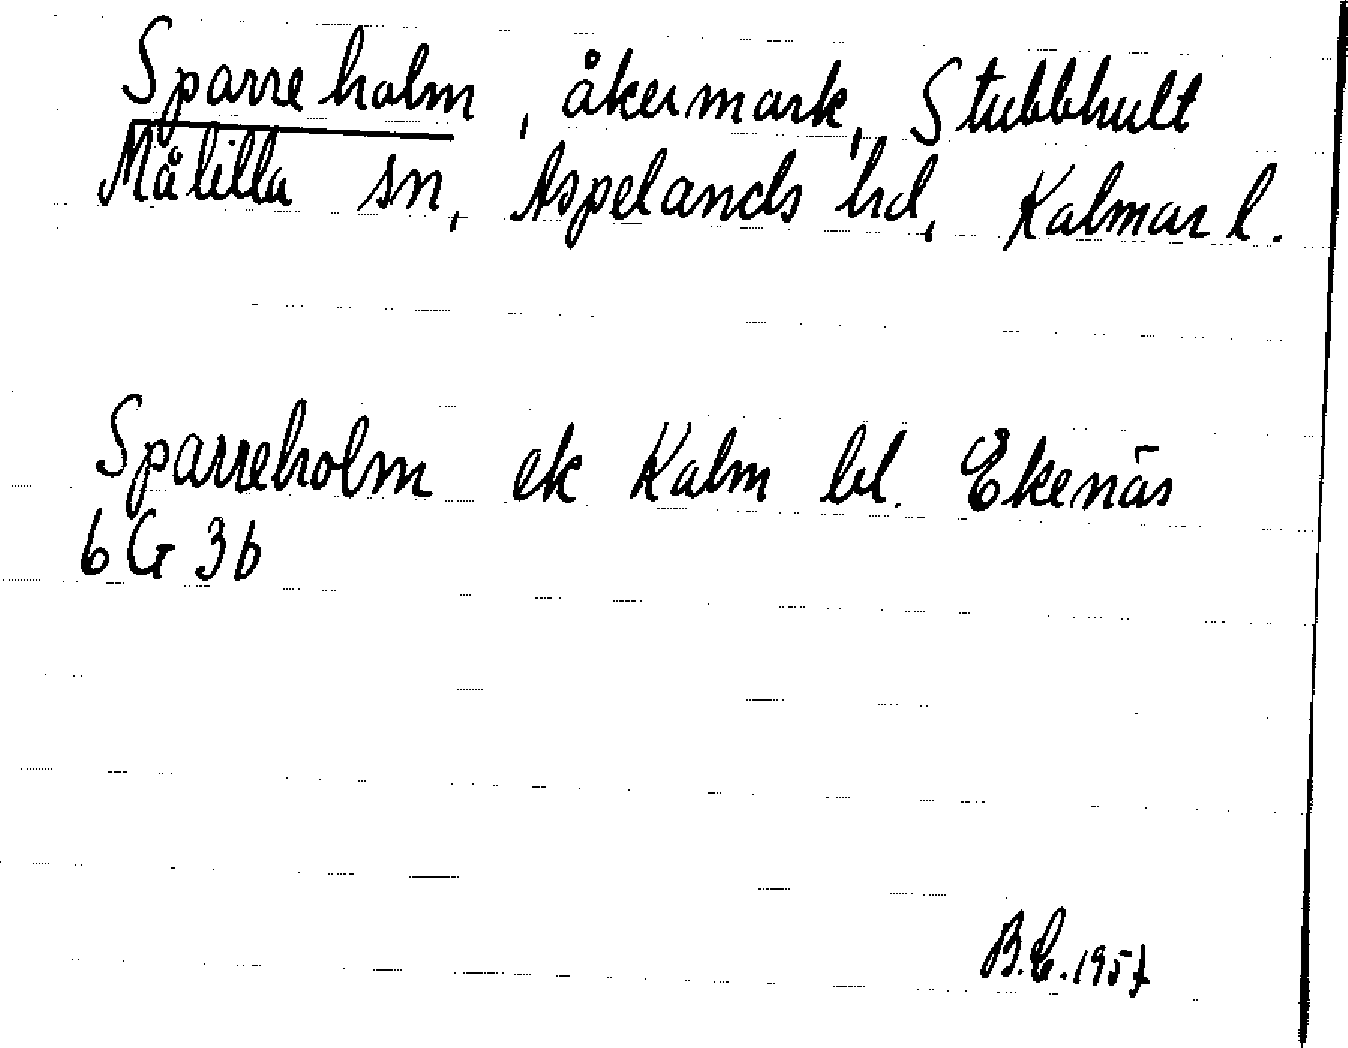 Sparreholm, åkermark, Stubbhult
Målilla sn, Aspelands hd, Kalmar l.
Sparreholm ek Kalm bl. Ekenäs
6 G 3b
B.E. 1957